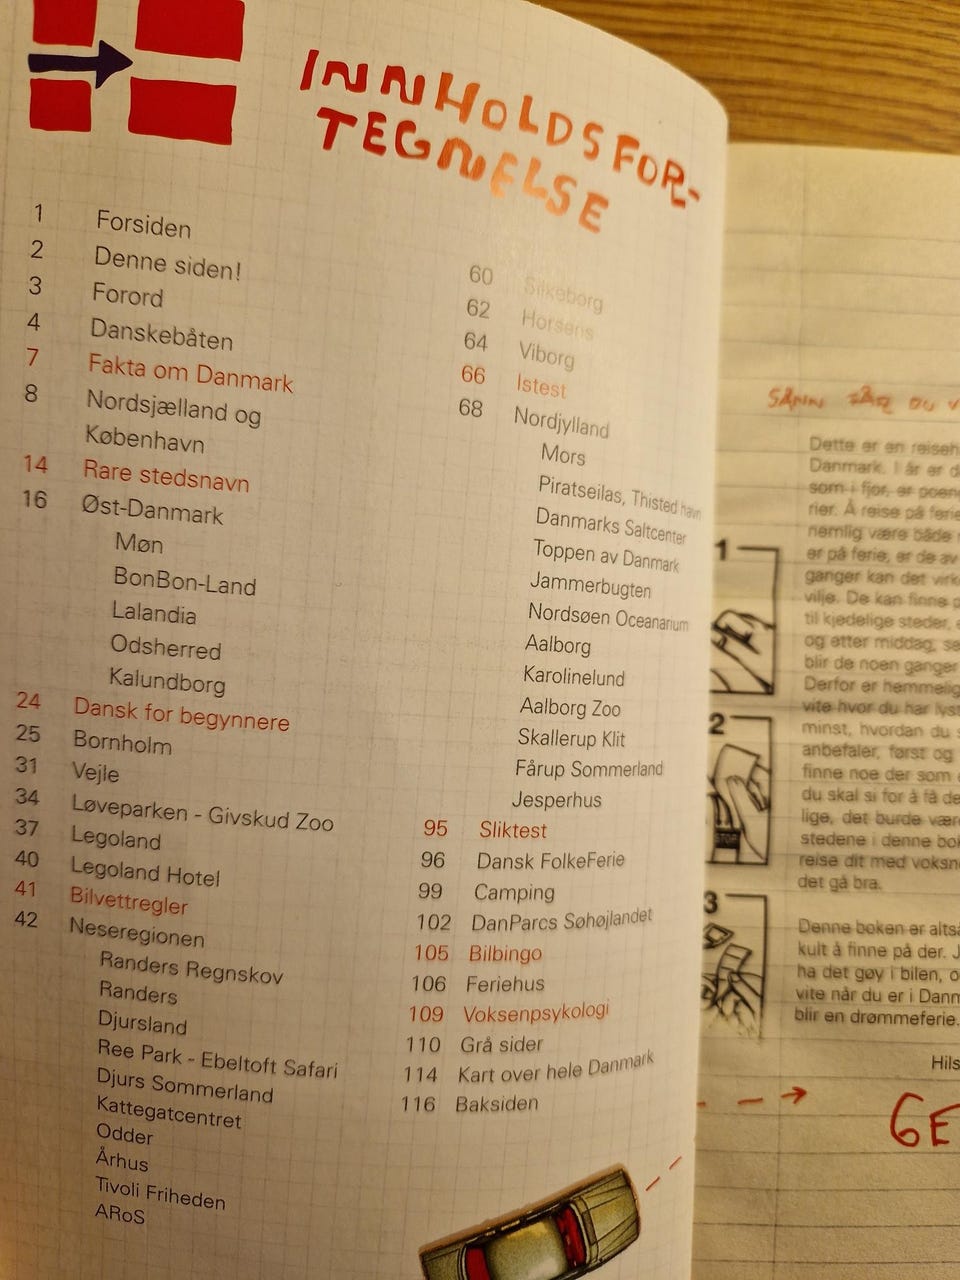 INNHOLDSFOR-
TEGNELSE
1 Forsiden
2 Denne siden!
3 Forord
4 Danskebåten
7 Fakta om Danmark
8 Nordsjælland og
København
14 Rare stedsnavn
16 Øst-Danmark
Møn
BonBon-Land
Lalandia
Odsherred
Kalundborg
24 Dansk for begynnere
25 Bornholm
31 Vejle
34 Løveparken - Givskud Zoo
37 Legoland
40 Legoland Hotel
41 Bilvettregler
42 Neseregionen
Randers Regnskov
Randers
Djursland
Ree Park - Ebeltoft Safari
Djurs Sommerland
Kattegatcentret
Odder
Århus
Tivoli Friheden
ARoS
60 Silkeborg
62 Horsens
64 Viborg
66 Istest
68 Nordjylland
Mors
Piratseilas, Thisted havn
Danmarks Saltcenter
Toppen av Danmark
Jammerbugten
Nordsøen Oceanarium
Aalborg
Karolinelund
Aalborg Zoo
Skallerup Klit
Fårup Sommerland
Jesperhus
95 Sliktest
96 Dansk FolkeFerie
99 Camping
102 DanParcs Søhøjlandet
105 Bilbingo
106 Feriehus
109 Voksenpsykologi
110 Grå sider
114 Kart over hele Danmark
116 Baksiden
SÅNN FÅR DU V
Dette er en reiseh
Danmark. I år er d
som i fjor, er poen
rier. Å reise på ferie
nemlig være både
er på ferie, er de av
ganger kan det virk
vilje. De kan finne p
til kjedelige steder, e
og etter middag, se
blir de noen ganger
Derfor er hemmelig
vite hvor du har lyst
minst, hvordan du s
anbefaler, først og
finne noe der som
du skal si for å få de
lige, det burde være
stedene i denne bok
reise dit med voksne
det gå bra.
Denne boken er altså
kult å finne på der. J
ha det gøy i bilen, o
vite når du er i Danm
blir en drømmeferie.
Hils
GE
1
2
STOP
3